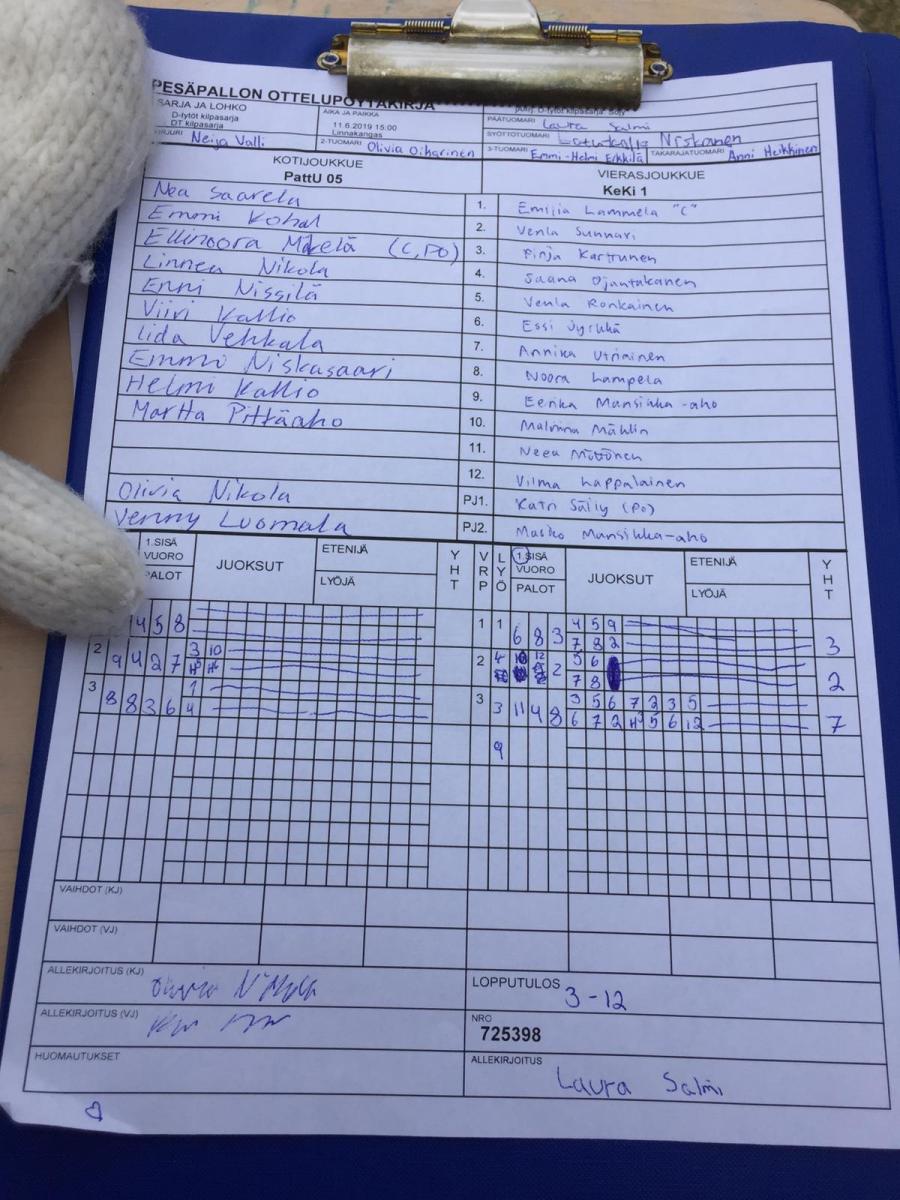 PESÄPALLON OTTELUPÖYTÄKIRJA
SARJA JA LOHKO
D-tytöt kilpasarja
DT kilpasarja
AIKA JA PAIKKA
11.6.2019 15:00
Linnakangas
PÄÄTUOMARI Laura Salmi
SYÖTTÖTUOMARI Niskanen
KIRJURI Neija Valli
2-TUOMARI Olivia Oikarinen
3-TUOMARI Emmi-Helmi Erkkilä
TAKARAJATUOMARI Anni Heikkinen
KOTIJOUKKUE
PattU 05
VIERASJOUKKUE
KeKi 1
Nea Saarela 1. Emilia Lammela "C"
Emmi 2. Venla Sunnari
Ellinoora Märelä (C, PO) 3. Pinja Karttunen
Linnea Nikola 4. Saana Ojantakanen
Enni Nissilä 5. Venla Ronkainen
Viivi Kallio 6. Essi Jyrkkä
Iida Vehkala 7. Annika Utriainen
Emmi Niskasaari 8. Noora Lampela
Helmi Kallio 9. Eerika Mansikka-aho
Martta Pittäaho 10. Malviina Mählin
11. Neea Möttönen
12. Vilma Lappalainen
Olivia Nikola PJ1. Katri Säily (PO)
Venny Luomala PJ2. Marko Mansikka-aho
1.SISÄ VUORO PALOT JUOKSUT ETENIJÄ LYÖJÄ YHT VRP LYÖ 1.SISÄ VUORO PALOT JUOKSUT ETENIJÄ LYÖJÄ YHT
4 5 8 1 1 6 8 3 4 5 9 3
7 8 2
2 9 4 2 7 3 10 2 4 2 5 6 2
7 8
3 8 8 3 6 1 3 3 11 4 8 3 5 6 7 2 3 5 7
4 6 7 2 5 6 12
9
VAIHDOT (KJ)
VAIHDOT (VJ)
ALLEKIRJOITUS (KJ) Olivia Nikola
LOPPUTULOS 3-12
ALLEKIRJOITUS (VJ)
NRO
725398
HUOMAUTUKSET
ALLEKIRJOITUS Laura Salmi